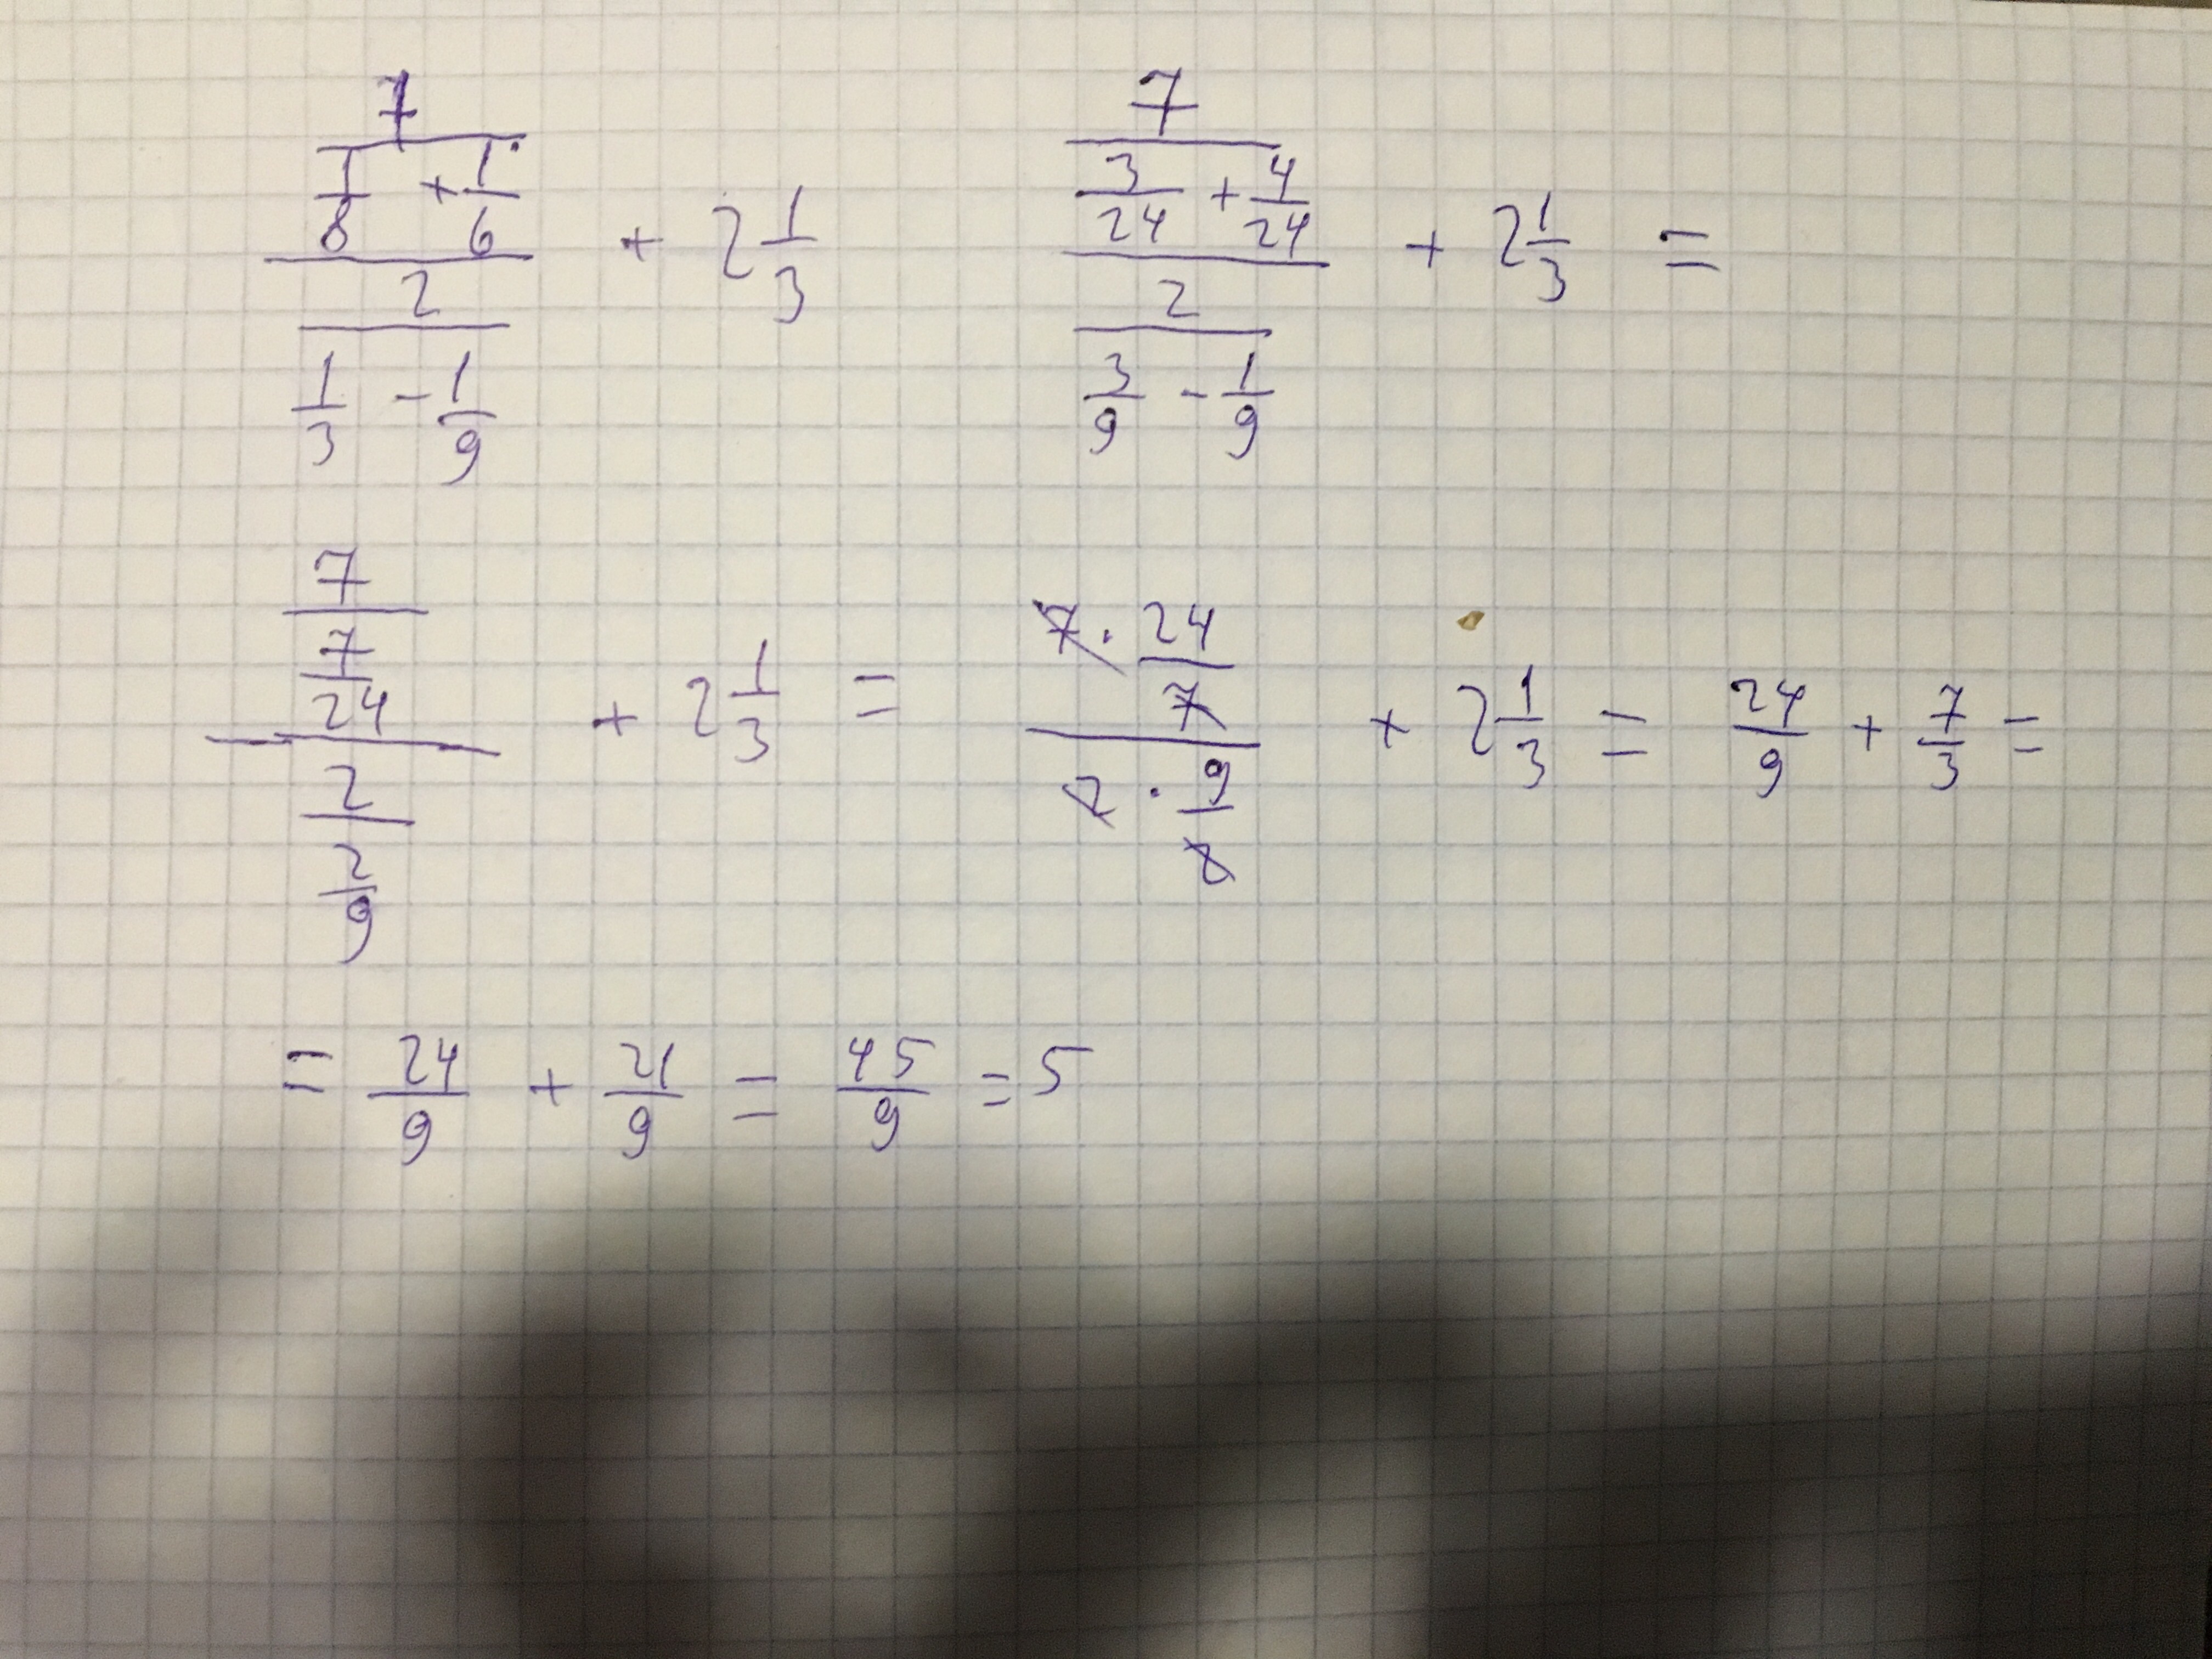 7/(1/8 + 1/6) / (2/(1/3 - 1/9)) + 2 1/3
7/(3/24 + 4/24) / (2/(3/9 - 1/9)) + 2 1/3 =
7/(7/24) / (2/(2/9)) + 2 1/3 = (7 · 24/7) / (2 · 9/2) + 2 1/3 = 24/9 + 7/3 =
= 24/9 + 21/9 = 45/9 = 5